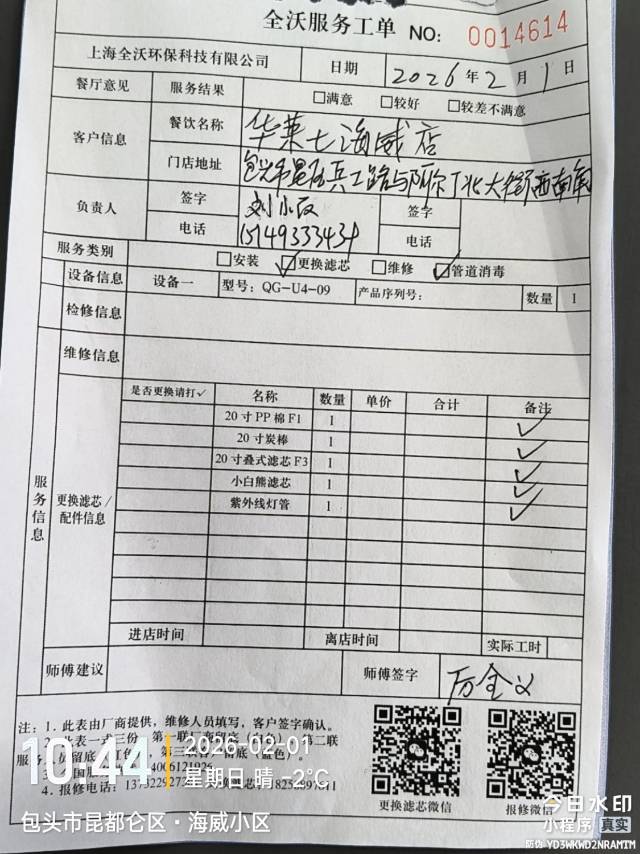 全沃服务工单 NO: 0014614
上海全沃环保科技有限公司 日期 2026年2月1日
餐厅意见 服务结果 □满意 □较好 □较差不满意
客户信息 餐饮名称 华莱士海威店
门店地址 包头市昆区兵工路与阿尔丁北大街西南角
负责人 签字 刘小 签字
电话 15149333434 电话
服务类别 □安装 ☑更换滤芯 □维修 ☑管道消毒
设备信息 设备一 型号: QG-U4-09 产品序列号: 数量 1
检修信息
维修信息
服务信息
更换滤芯/配件信息
是否更换请打✓ 名称 数量 单价 合计 备注
20寸PP棉F1 1 ✓
20寸炭棒 1 ✓
20寸叠式滤芯F3 1 ✓
小白熊滤芯 1 ✓
紫外线灯管 1 ✓
进店时间 离店时间 实际工时
师傅建议 师傅签字 厉金义
注: 1. 此表由厂商提供，维修人员填写，客户签字确认。
表一式三份，第一联厂商留底 第二联
服务 留底 红色 第三联 留底（蓝色）。
4006121926
4. 报修电话:
更换滤芯微信 报修微信
10:44 2026-02-01
星期日 晴 -2℃
包头市昆都仑区·海威小区
今日水印
小程序 真实
防伪 YD3WKWD2NRAMTM